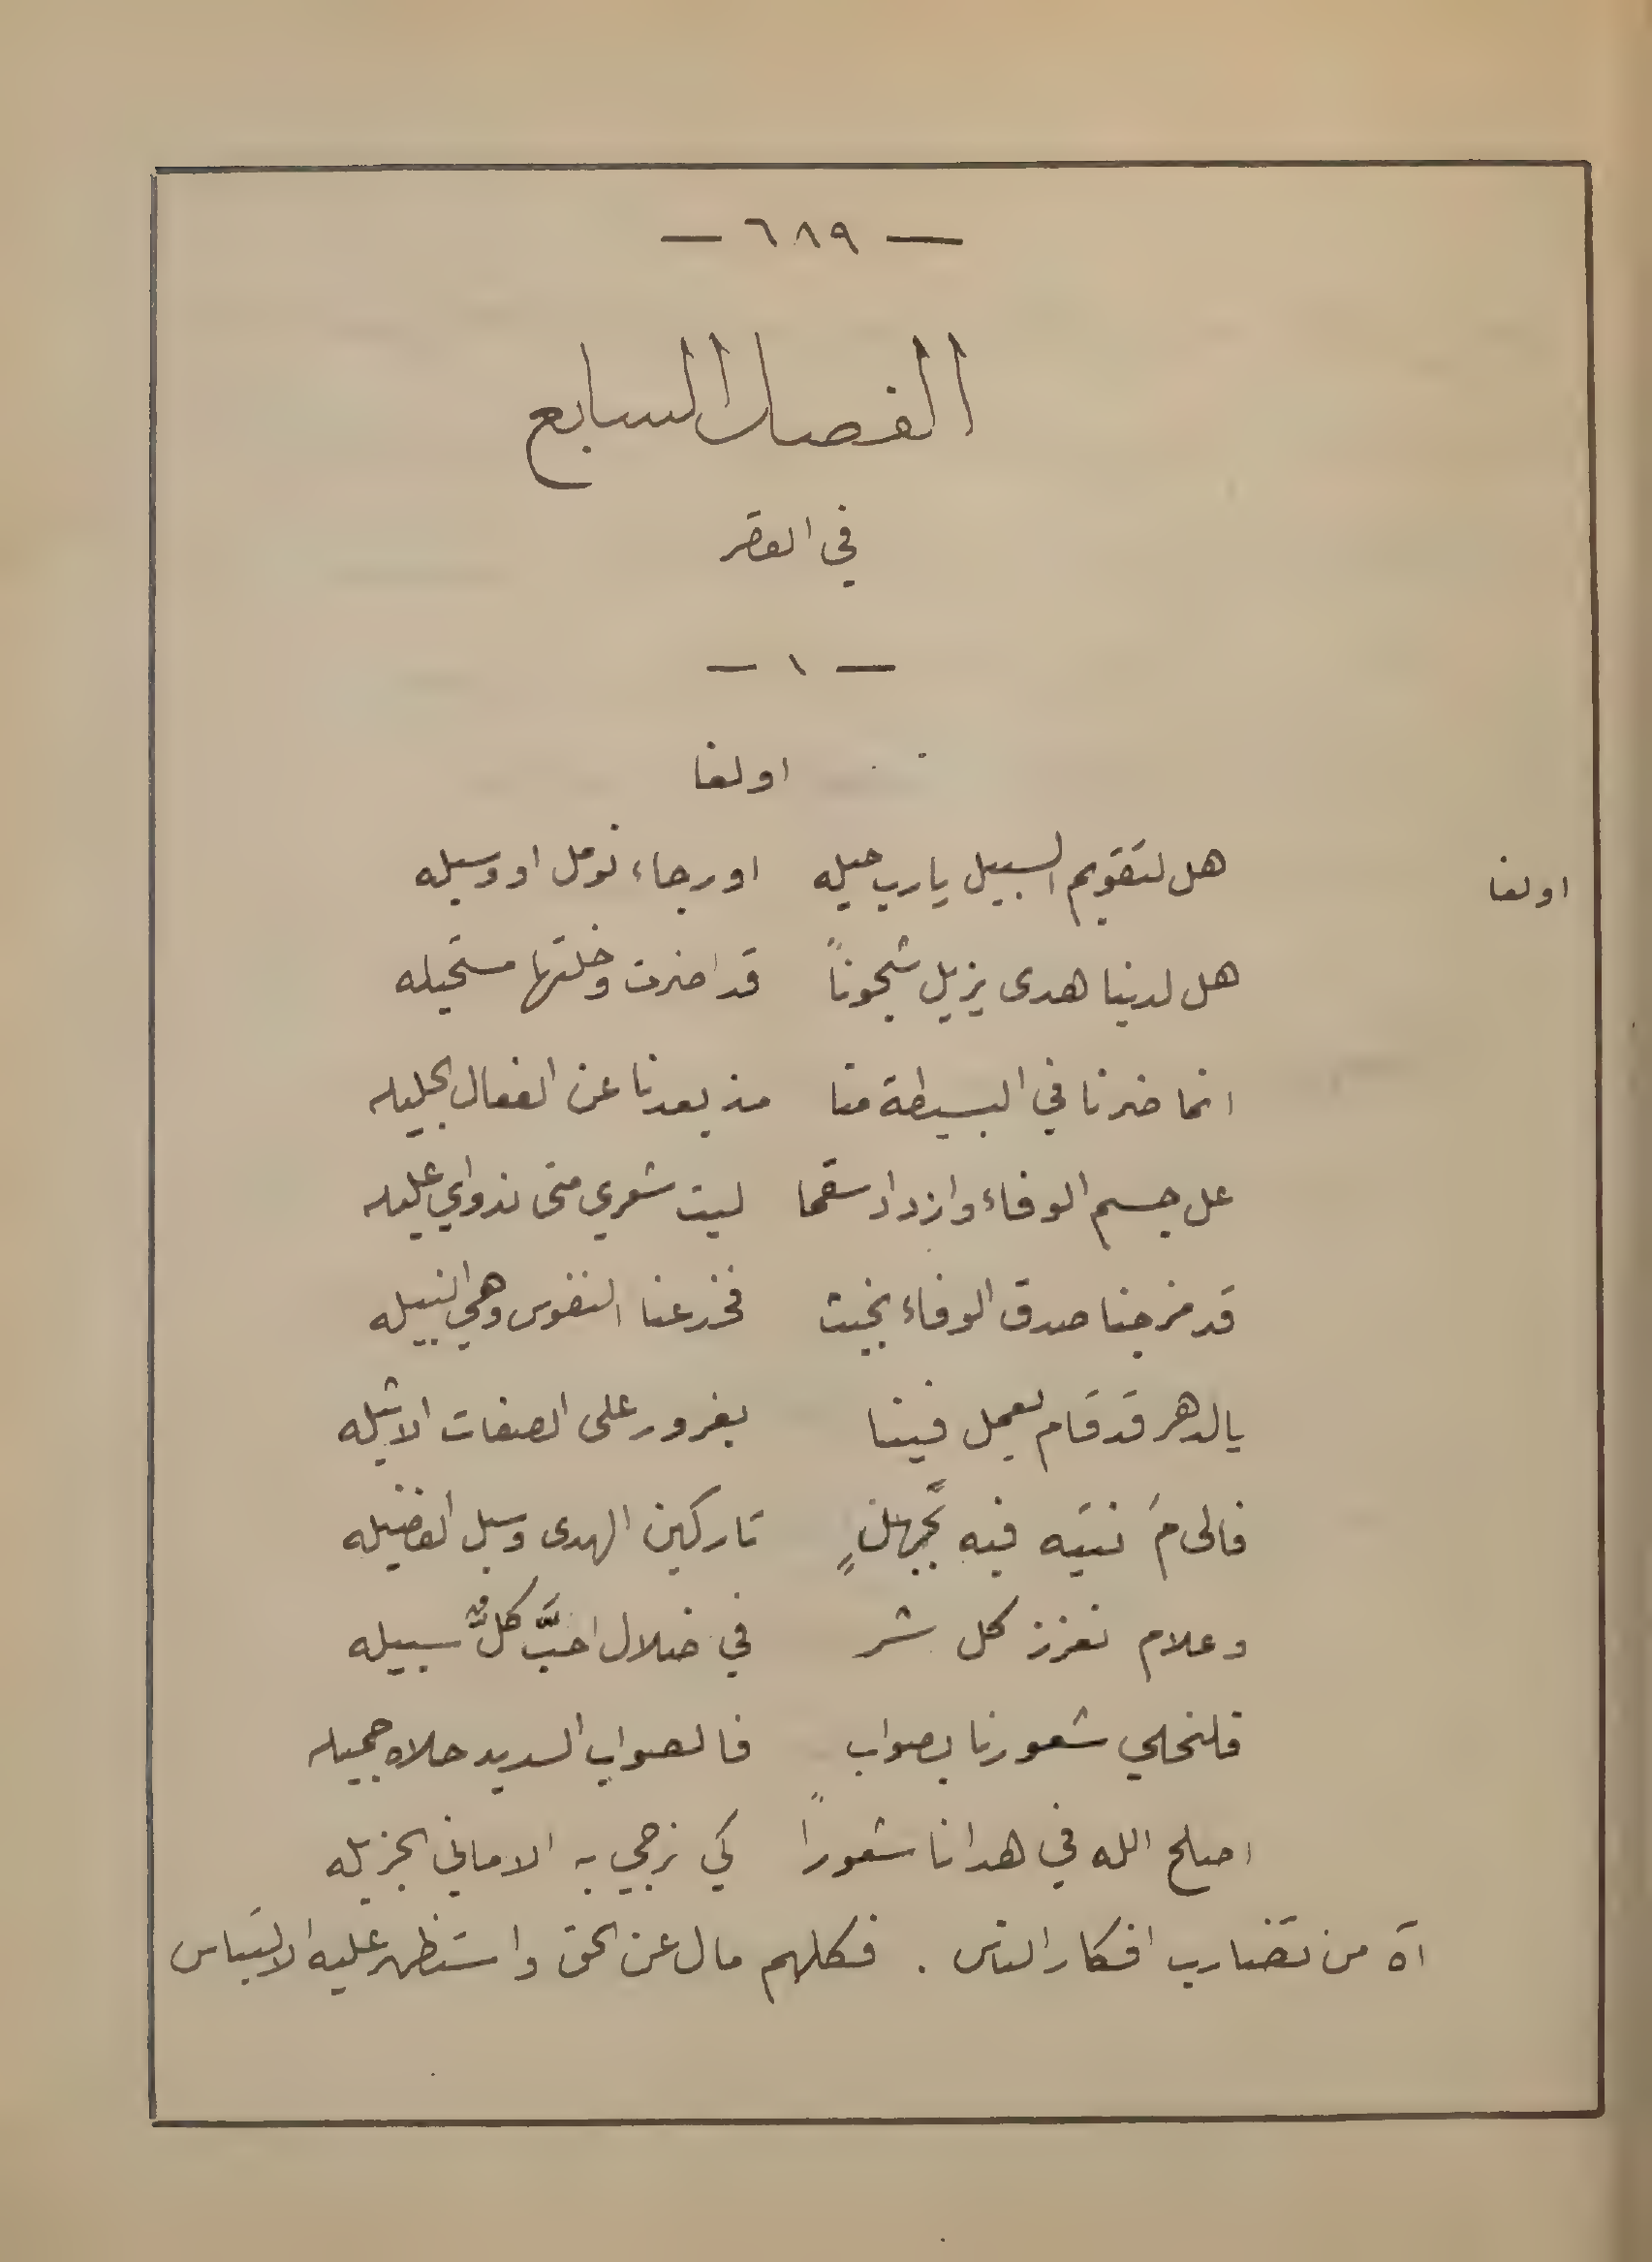 — ٦٨٩ —
الفصل السابع
في القصر
— ١ —
اولغا
اولغا هل لتقويم السبيل يا رب حيله او رجاء نؤمل او وسيله
هل لدينا هدى يزيل شجوناً قد اضرت وخلتها مستحيله
انما ضرنا في البسيطة منا مذ بعدنا عن الفعال الجليله
عل جسم الوفاء وازداد سقما ليت شعري متى نداوي عليله
قد مزجنا صدق الوفاء بخبث النفوس وهي النبيله
يالدهر قد قام يعمل فينا بغرور على الصفات الاثيله
فالى مَ نتيه فيه بجهلٍ تاركين الهدى وسبل الفضيله
وعلام نعزز كل شر في ضلال احبَّ كلٌّ سبيله
فلنحلي شعورنا بصواب فالصواب السديد حلاه جميله
اصلح الله في هدانا شعوراً كي نرجي به الاماني الجزيله
آه من تضارب افكار الناس . فكلهم مال عن الحق واستظهر عليه الالتباس